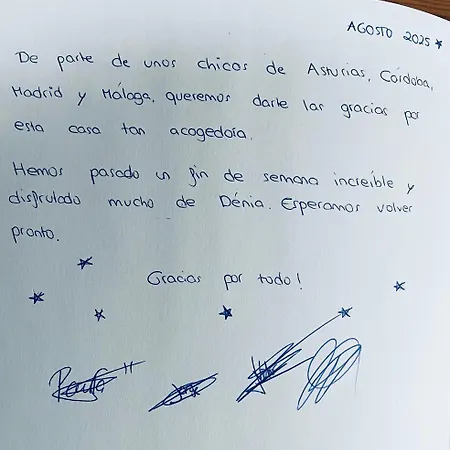 AGOSTO 2025
De parte de unos chicos de Asturias, Córdoba,
Madrid y Málaga, queremos darte las gracias por
esta casa tan acogedora.
Hemos pasado un fin de semana increíble y
disfrutado mucho de Dénia. Esperamos volver
pronto.
Gracias por todo!